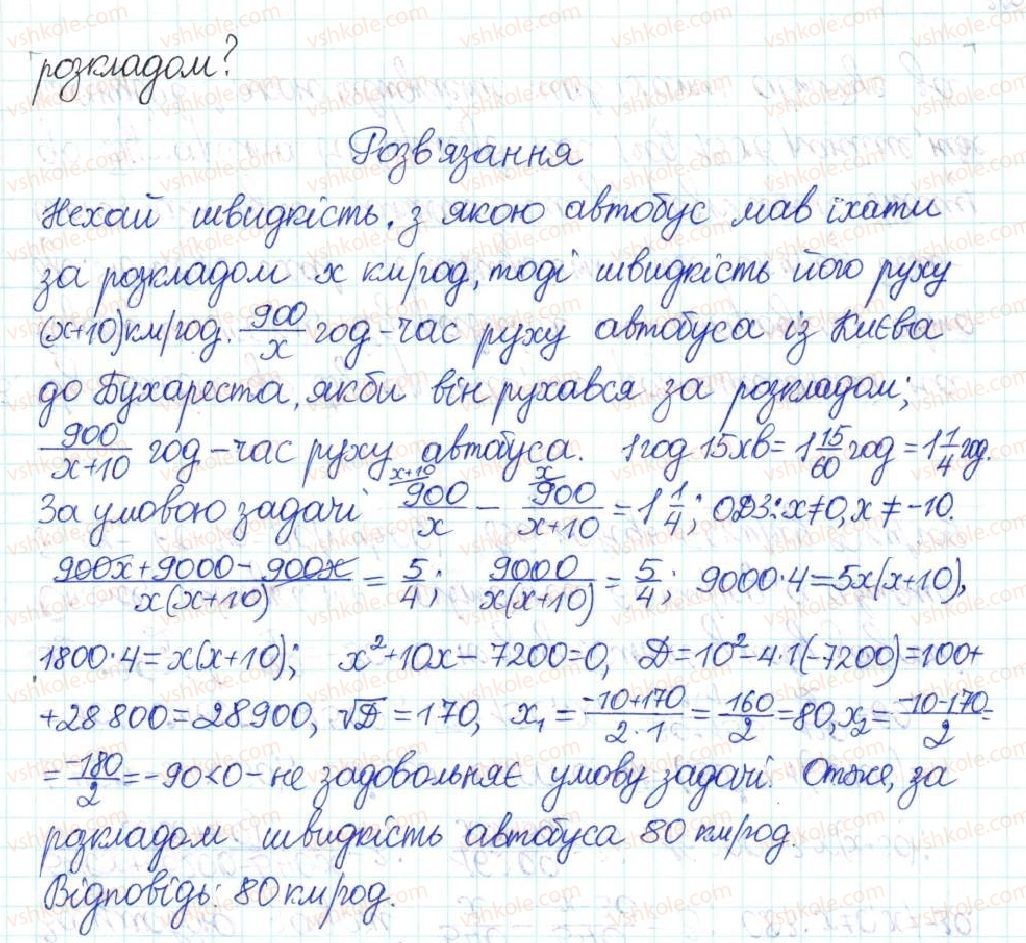 розкладом?
Розв'язання
Нехай швидкість, з якою автобус мав їхати
за розкладом x км/год, тоді швидкість його руху
(x+10)км/год. 900/x год - час руху автобуса із Києва
до Бухареста, якби він рухався за розкладом;
900/(x+10) год - час руху автобуса. 1год 15хв = 1 15/60 год = 1 1/4 год.
За умовою задачі x+10 900/x - x 900/(x+10) = 1 1/4; ОДЗ: x≠0, x≠-10.
(900x+9000-900x)/(x(x+10)) = 5/4; 9000/(x(x+10)) = 5/4; 9000·4=5x(x+10),
1800·4=x(x+10); x²+10x-7200=0, D=10²-4·1(-7200)=100+
+28800=28900, √D=170, x₁=(-10+170)/(2·1)=160/2=80, x₂=(-10-170)/2=
=-180/2=-90<0 - не задовольняє умову задачі. Отже, за
розкладом швидкість автобуса 80 км/год.
Відповідь: 80 км/год.